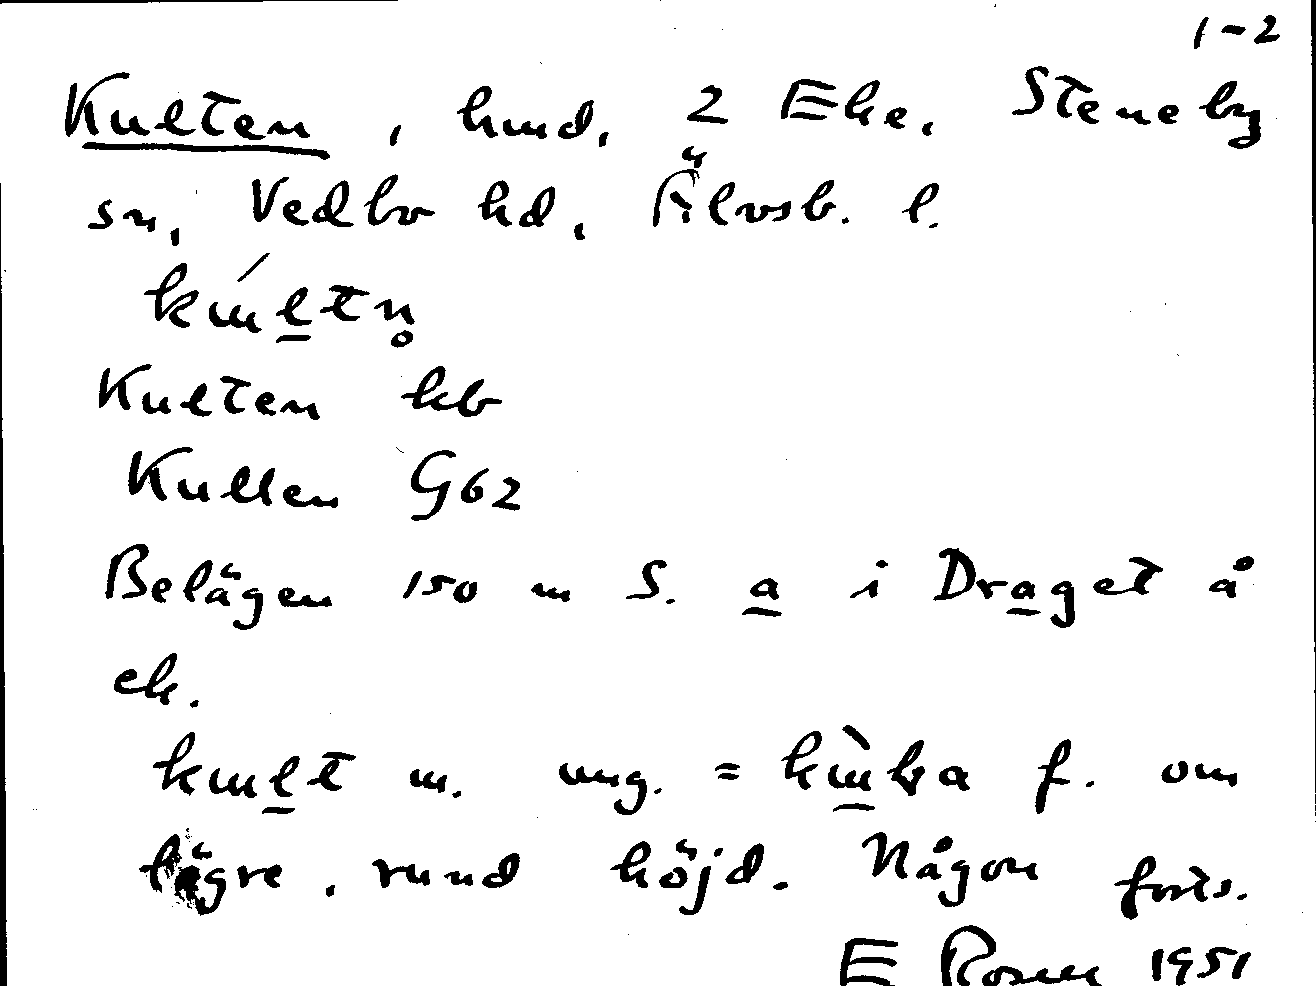 1-2
Kulten, hmd, 2 Eke, Steneby
sn, Vedbo hd, Älvsb. l.
kɯ́ltn̥
Kulten kb
Kullen G62
Belägen 150 m S. a i Draget å
ek.
kɯlt m. ung. = kɯ̀ba f. om
lägre, rund höjd. Någon forts.
E Rosén 1951